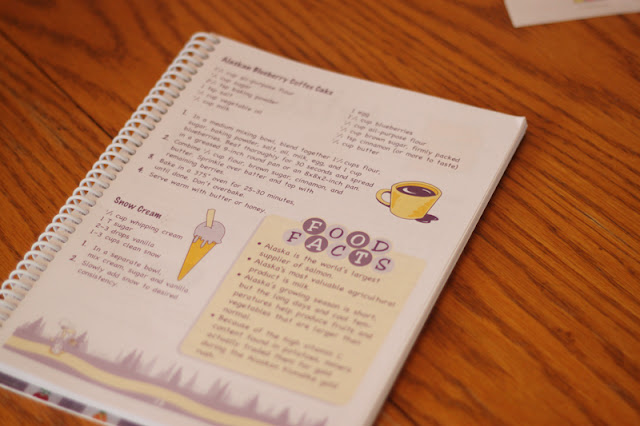 Alaskan Blueberry Coffee Cake
cup all-purpose flour
cup sugar
tsp baking powder
tsp salt
cup vegetable oil
cup milk
1 egg
cup blueberries
cup all-purpose flour
cup brown sugar, firmly packed
tsp cinnamon (or more to taste)
cup butter
1. In a medium mixing bowl, blend together cups flour,
sugar, baking powder, salt, oil, milk, egg, and 1 cup
blueberries. Beat thoroughly for 30 seconds and spread
in a greased 9-inch round pan or an 8x8x2-inch pan.
2. Combine cup flour, brown sugar, cinnamon, and
butter. Sprinkle over batter and top with
remaining berries.
3. Bake in a 375° oven for 25-30 minutes,
until done. Don't overbake.
4. Serve warm with butter or honey.
Snow Cream
cup whipping cream
1 T sugar
2-3 drops vanilla
cups clean snow
1. In a separate bowl,
mix cream, sugar and vanilla.
2. Slowly add snow to desired
consistency.
FOOD
FACTS
• Alaska is the world's largest
supplier of salmon.
• Alaska's most valuable agricultural
product is milk.
• Alaska's growing season is short,
but the long days and cool tem-
peratures help produce fruits and
vegetables that are larger than
normal.
• Because of the high vitamin C
content found in potatoes, miners
actually traded them for gold
during the Alaskan Klondike gold
rush.